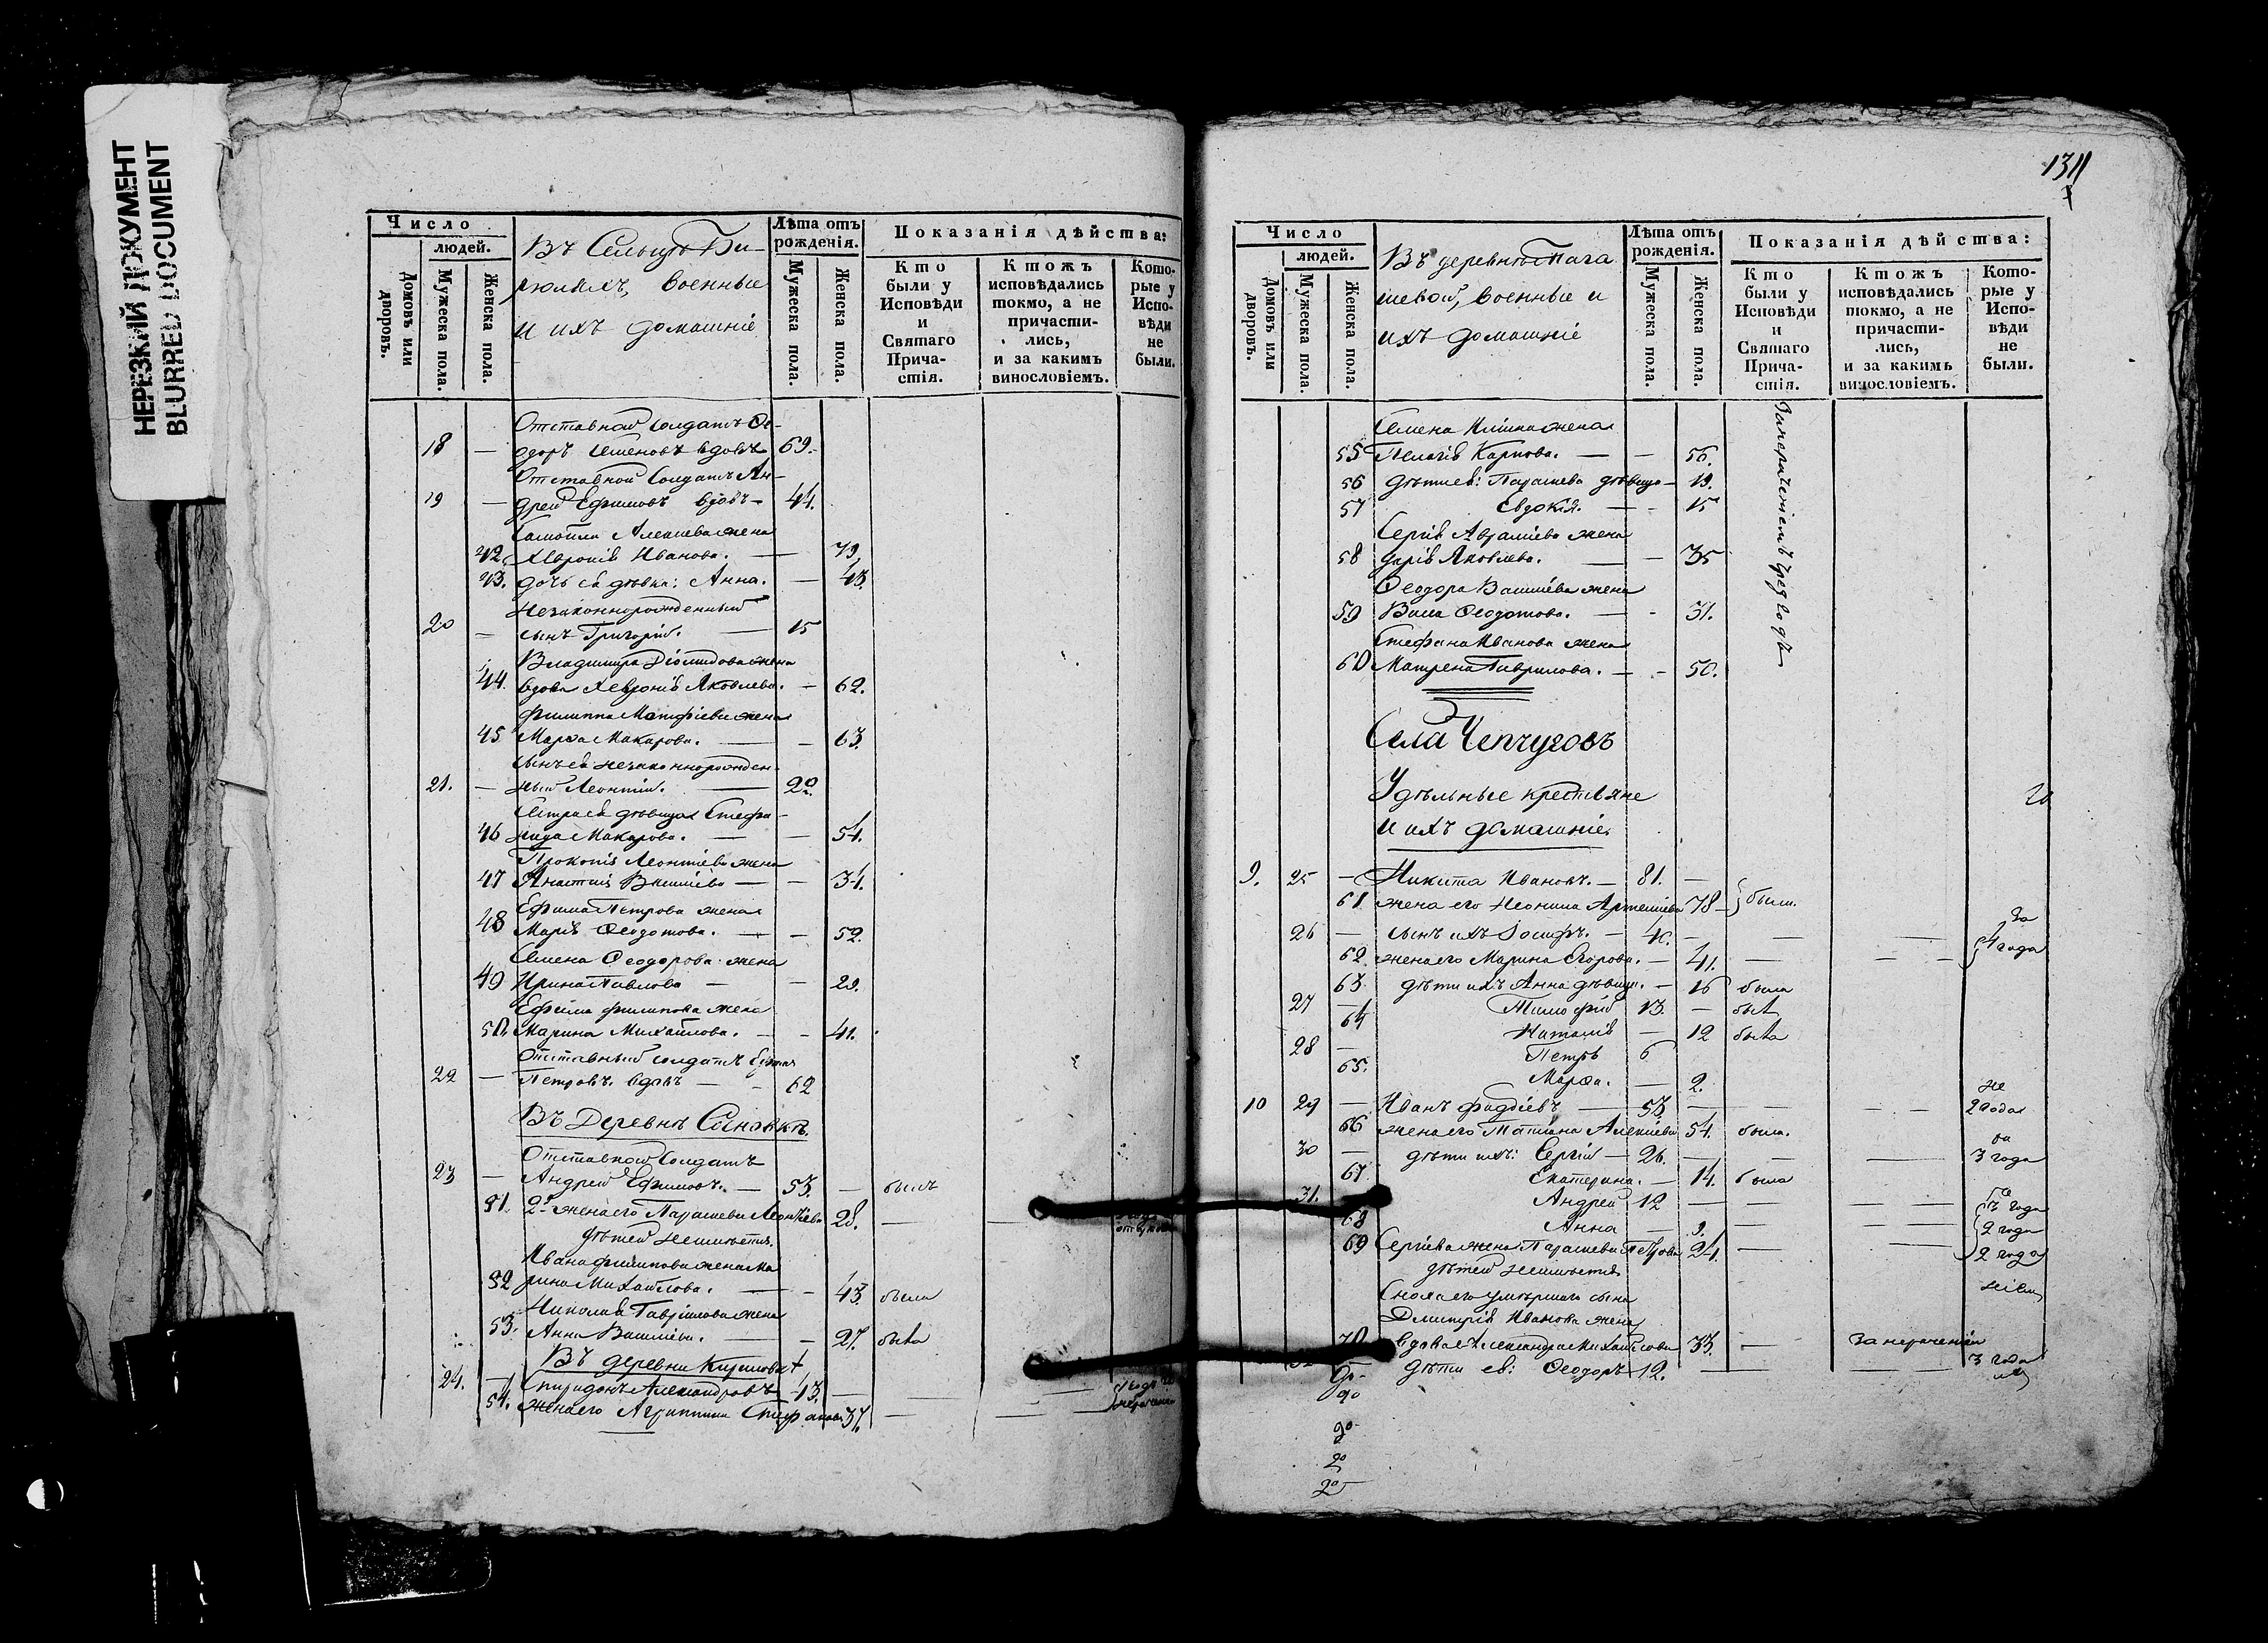 НЕРЕЗКИЙ ДОКУМЕНТ
BLURRED DOCUMENT
Число
людей.
Домовъ или дворовъ.
Мужеска пола.
Женска пола.
Въ Сельцѣ Би-
рюляхъ, военные
и ихъ домашніе
Лѣта отъ рожденія.
Мужеска пола.
Женска пола.
Показанія дѣйства:
Кто были у Исповѣди и Святаго Прича-стія.
Ктожъ исповѣдались токмо, а не причасти-лись, и за какимъ винословіемъ.
Кото-рые у Испо-вѣди не были.
Отставной солдатъ Ѳе-
18 — одоръ Семеновъ вдовъ 69.
Отставной солдатъ Ан-
19 — дрей Ефимовъ вдовъ — 44.
Самойла Алексѣева жена
42. Хевронія Иванова. — 79.
43. дочь ея дѣвка: Анна. — 43.
Незаконнорожденный
20 — сынъ Григорій. — 15
Владимира Діомидова жена
44. вдова Хевронія Яковлева. — 62.
Филиппа Матфіева жена
45 Марѳа Макарова. — — 63.
сынъ ея незаконнорожден-
21. — ный Леонтій. — 22.
Сестра ея дѣвица Стефа-
46 нида Макарова. — — 54.
Прокопія Леонтіева жена
47 Анастасія Васильева — — 34.
Ефима Петрова жена
48 Марія Ѳеодотова. — — 52.
Семена Ѳеодорова жена
49 Ирина Павлова — — 29.
Ефима Филипова жена
50. Марина Михайлова. — — 41.
Отставный солдатъ Ефимъ
22 — Петровъ. вдовъ — — 62
Въ Деревнѣ Сеновкѣ.
Отставной солдатъ
23 — Андрей Ефимовъ. — 53. — былъ
51. 2я жена его Парасковья Леонтіева 28. —
дѣтей неимѣетъ.
Ивана Филипова жена Ма
52 рина Михайлова. — — 43. была
Николая Гаврилова жена
53. Анна Васильева. — — 27. была
Въ деревни Кириловкѣ
24. — Спиридонъ Александровъ 43. —
54. жена его Агриппина Стефанова 37. —
1311
Число
людей.
Домовъ или дворовъ.
Мужеска пола.
Женска пола.
Въ деревнѣ Пага
шевой, военные и
ихъ домашніе
Лѣта отъ рожденія.
Мужеска пола.
Женска пола.
Показанія дѣйства:
Кто были у Исповѣди и Святаго Прича-стія.
Ктожъ исповѣдались токмо, а не причасти-лись, и за какимъ винословіемъ.
Кото-рые у Испо-вѣди не были.
Семена жена
55 Пелагія Карпова. — — 56.
56 дѣти ея: Парасковья дѣвица — 19.
57 Евдокія. — — 15
Сергія Авраміева жена
58 Дарія Яковлева. — — 35
Ѳеодора Васильева жена
59 Васса Ѳеодотова. — — 31.
Стефана Иванова жена
60 Матрена Гаврилова. — — 50.
Села Чепчуговъ
Удѣльные крестьяне
и ихъ домашніе.
20
9. 25 — Никита Ивановъ. — 81. —
61. жена его Неонила Артеміева 78 — были.
26 — сынъ ихъ Іосифъ. — 40. — за
62. жена его Марина Егорова. — 41. — 4 года
63. дѣти ихъ Анна дѣвица. — 16 была
27 — Тимофѣй 13. — былъ
64 Наталія — 12 была
28 — Петръ 6
65. Марѳа. — 2.
10 29 — Иванъ Фадѣевъ — 53. — не
2 года
66 жена его Татіана Алексѣева 54. была.
30 — дѣти ихъ: Сергій — 26. — 3 года
67. Екатерина. — 14. была
31. Андрей 12 —
68 Анна — 9. — 2 года
69 Сергѣева жена Парасковья Петрова 24. — 2 года
дѣтей неимѣетъ
Сноха его умершаго сына
Димитрія Иванова жена
70 вдова Александра Михайлова 33. — за нераченіем
дѣти ея: Ѳеодоръ 12. — 3 года